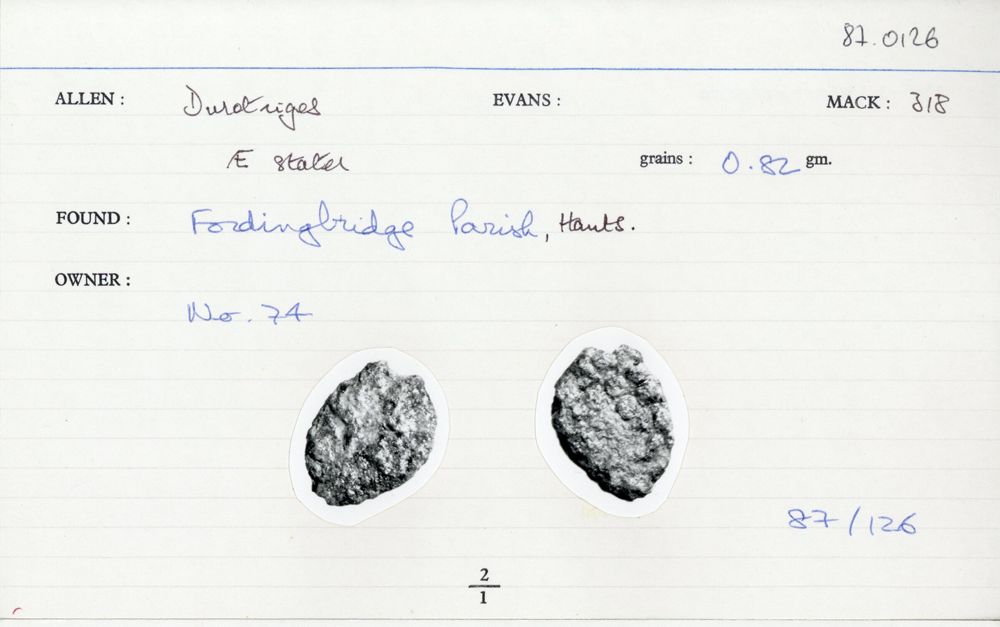 87.0126
ALLEN : Durotriges EVANS : MACK : 318
Æ stater grains : 0.82 gm.
FOUND : Fordingbridge Parish, Hants.
OWNER :
No. 74
87/126
2
1